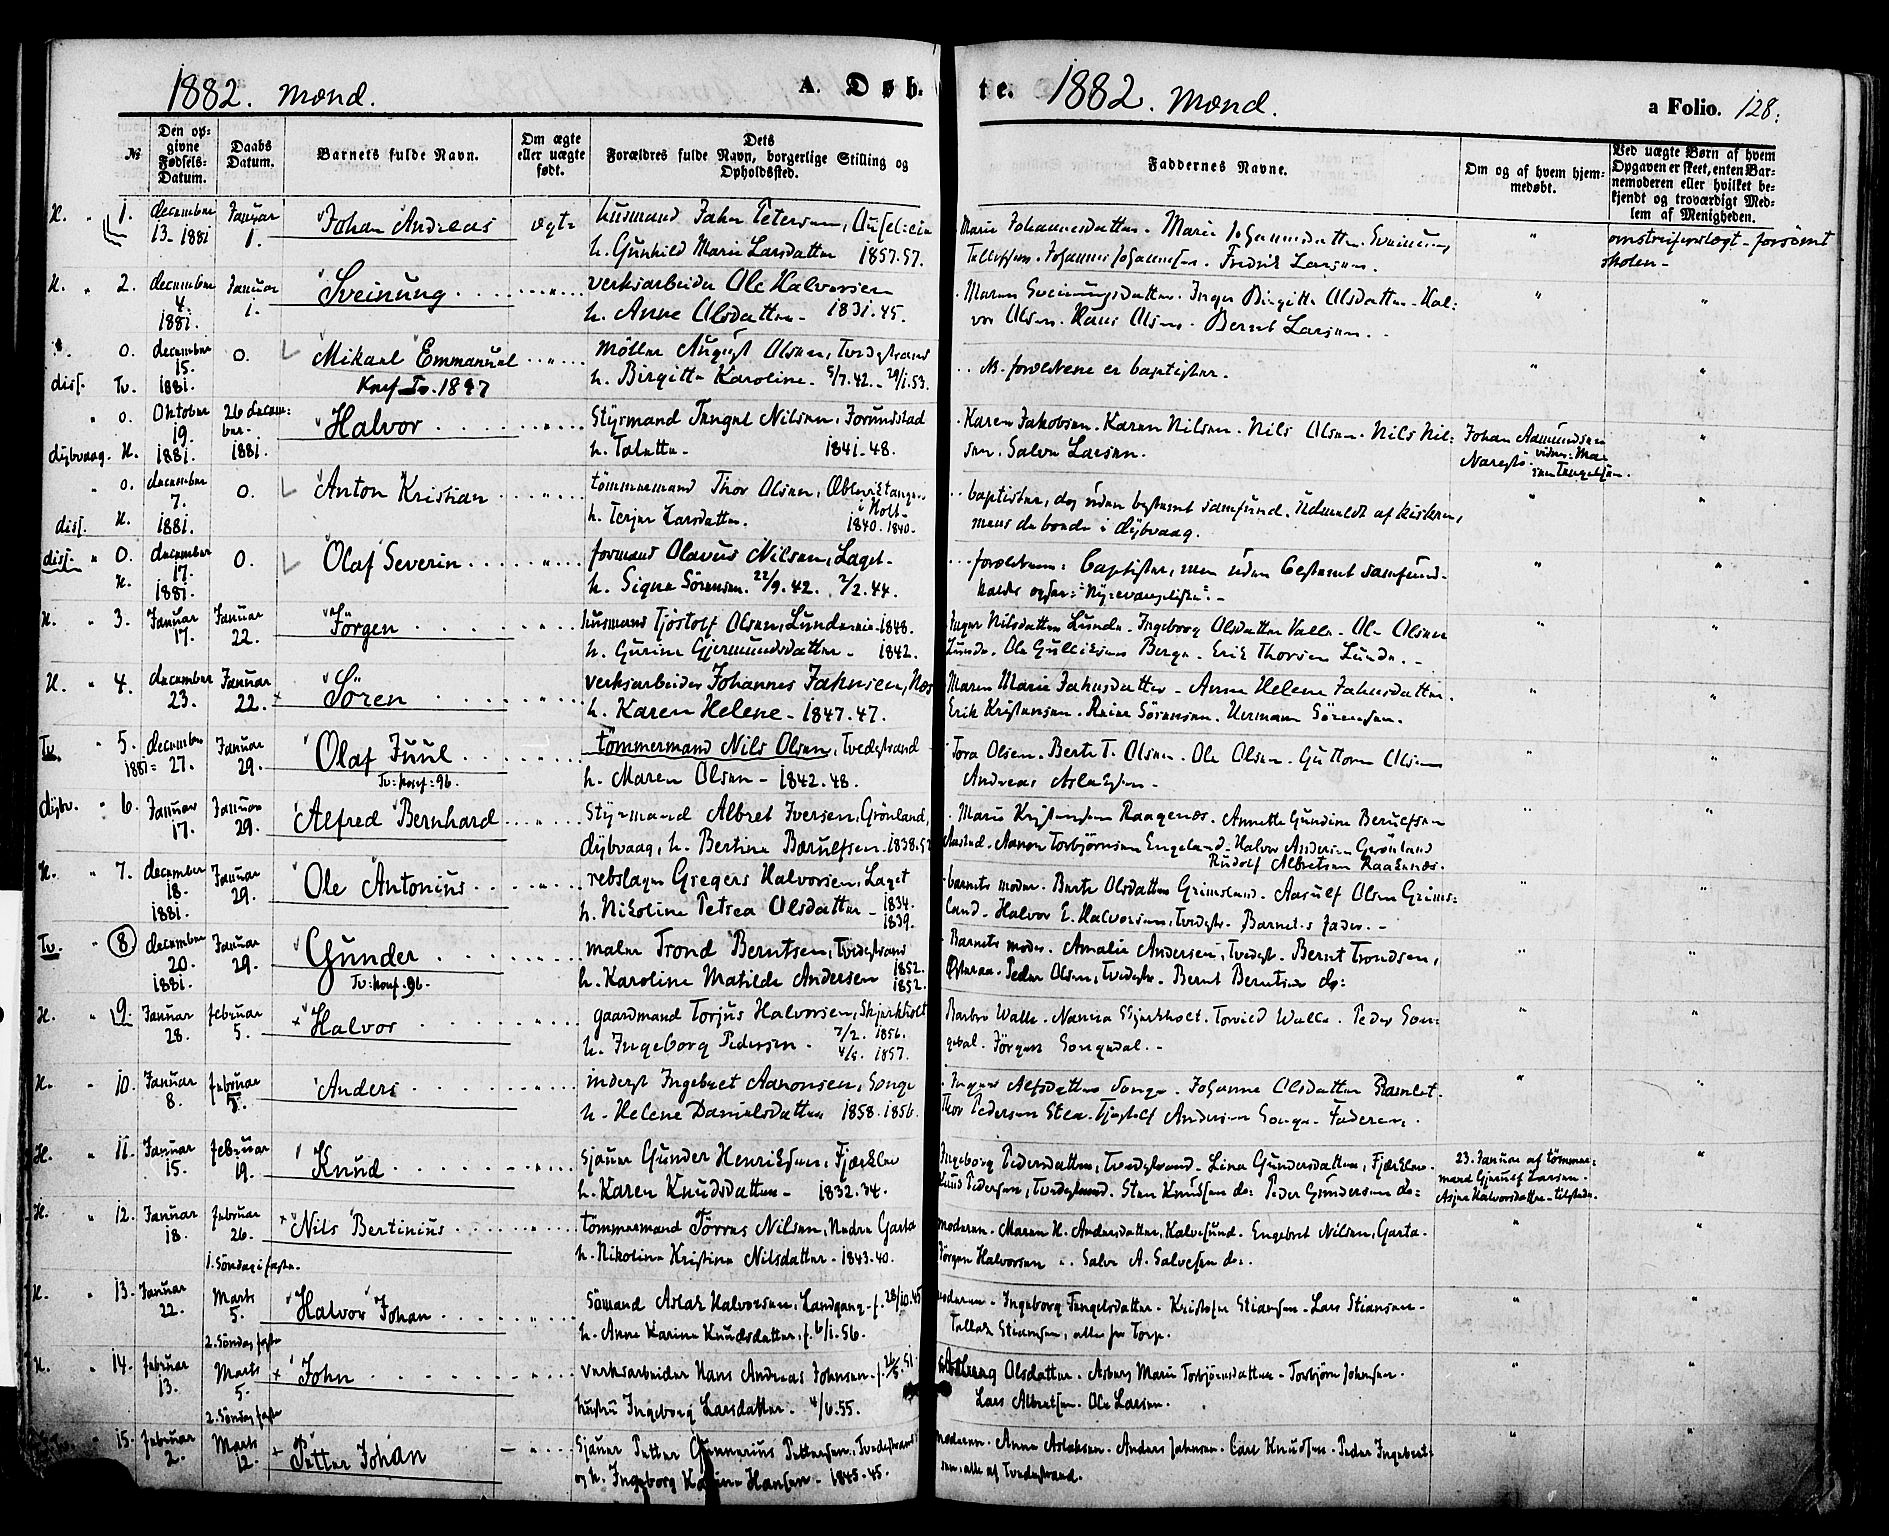 1882. Mænd. A. Døb-
№
Den op-
givne
Fødsels-
Datum.
Daabs
Datum.
Barnets fulde Navn.
Om ægte
eller uægte
født.
Dets
Forældres fulde Navn, borgerlige Stilling og
Opholdssted.
H. " 1. december Januar Johan Andreas ægte husmand Jahn Petersen,
13. 1881 1. h. Gunhild Marie Larsdatter 1857.57.
H. " 2. december Januar Sveinung verksarbeider Ole Halvorsen
4. 1. h. Anne Olsdatter - 1831.45.
1881.
0. december 0. Mikael Emmanuel Møller August Olsen, Tvedestrand
15. h. Birgitte Karoline. 5/7.42. - 29/1.53.
diss. Tv. 1881. Konf Tv. 1897
" 0. Oktober 26 decem- Halvor Styrmand Tengel Nilsen, Forundstad
19. ber- h. Talette - 1841-48.
dybvaag. H. 1881. 1881.
" 0. december 0. Anton Kristian tømmermand Thor Olsen,
7. i Holt-
diss. H. 1881. h. Terjer Larsdatter. 1840.1840.
diss. " 0. december 0. Olaf Severin formand Olavus Nilsen, Laget-
17. h. Signe Sørensen. 22/9.42. 2/2.44.
H. 1881.
H. " 3. Januar Januar Jørgen husmand Tjøstolf Olsen, 1848.
17. 22. h. Gurine Gjermundsdatter - 1842.
H. " 4. december Januar Søren verksarbeider Johannes Jahnsen, Næs
23. 22. h. Karen Helene - 1847.47.
Tv. " 5. decembr Januar Olaf Juul tømmermand Nils Olsen, Tvedestrand
1881= 27. 29. Tv: konf: 96. h. Maren Olsen - 1842.48.
dybv. " 6. Januar Januar Alfred Bernhard Styrmand Albret Iversen, Grønland,
17. 29. dybvaag, h. Bertine Berulfsen - 1838.
H. " 7. december Januar Ole Antonius rebslager Gregers Halvorsen, Laget
18. 29. h. Nikoline Petrea Olsdatter - 1834.
1881. 1839.
Tv. " 8 december Januar Gunder maler Trond Berntsen, Tvedestrand
20. 29. 1852.
1881. Tv: konf. 96. h. Karoline Matilde Andersen 1852.
H. " 9. Januar februar Halvor gaardmand Torjus Halvorsen, Skjerkholt
28. 5. h. Ingeborg Pedersen. 7/2. 1856.
4/5. 1857.
H. " 10. Januar februar Anders inderst Ingebret Aanonsen, Songe
8. 5. h. Helene Danielsdatter 1858.1856.
H. " 11. Januar februar Knud Sjauer Gunder Henriksen, Fjærkler
15. 19. h. Karen Knudsdatter - 1832.34.
H. " 12. Januar februar Nils Bertinius tømmermand Tørres Nilsen, Nedre Garta
18. 26. h. Nikoline Kristine Nilsdatter - 1843-40.
1. Søndag i faste.
H. " 13. Januar Marts Halvor Johan Sømand Aslak Halvorsen, Landgang - f. 28/10.45
22. 5. h. Anne Karine Knudsdatter, f. 6/1.56.
2. Søndag faste
H. " 14. februar Marts John verksarbeider Hans Andreas Johnsen - f. 26/5.51.
13. 5. hustru Ingeborg Larsdatter. 4/6.55.
2. Søndag faste
" 15. februar Marts Petter Johan Sjauer Petter Gunnerius Pettersen, Tvedestrand
2. 12. og h. Ingeborg Katrine Hansen - 1845-45.
te. 1882. Mænd. a Folio. 128.
Faddernes Navne.
Om og af hvem hjem-
medøbt.
Ved uægte Børn af hvem
Opgaven er skeet, enten Bar-
nemoderen eller hvilket be-
kjendt og troværdigt Med-
lem af Menigheden.
Marie Johannesdatter. Marie Johannesdatter. Sveinung omstreiferslægt - forsømt
Tellefsen. Johannes Johannesen. Fredrik Larsen. skolen -
Maren Sveinungsdatter. Inger Birgitte Olsdatter. Hal-
vor Olsen. Hans Olsen. Bernt Larsen.
N. forældrene er baptister.
Karen Jakobsen. Karen Nilsen. Nils Olsen. Nils Nil- Johan Aamundsen
sen. Salve Larsen. Narestø. vidner: Ma-
ren Tengelsen.
baptister, dog uden bestemt samfund. Udmeldt af kirken,
mens de boede i dybvaag.
forældrene: baptister, men uden bestemt samfund.
kalder ogsaa: "Ny-evangeliske". -
Inger Nilsdatter Lunde. Ingeborg Olsdatter Valle. Ole Olsen
Lunde. Ole Gulliksen Berge. Erik Thorsen Lunde. -
Maren Marie Jahnsdatter - Anne Helene Jahnsdatter.
Erik Kristensen. Reier Sørensen. Herman Sørensen.
Tora Olsen. Berte T. Olsen. Ole Olsen. Guttorm Olsen
Andreas Aslaksen -
Marie Kristensen Raagenæs. Annette Gundine Berulfsen
Aanon Torbjørnsen Engeland. Halvor Andersen Grønland
Rudolf Albretsen Raakenæs.
barnets moder. Berte Olsdatter Grimsland. Aasulf Olsen Grims-
land. Halvor E. Halvorsen, Tvedestr. Barnets fader. -
Barnets moder. Amalie Andersen, Tvedest. Bernt Trondsen,
Østeraa. Peder Olsen, Tvedestr. Bernt Berntsen do:
Barbro Walle. Skjerkholt. Torvild Walle. Peder Son-
gedal. Jørgen Songedal. -
Inger Alfsdatter Songe. Johanne Olsdatter Ramlet.
Thor Pedersen Tjøstolf Andersen Songe. Faderen.
Ingeborg Pedersdatter, Tvedestrand. Lina Gundersdatter, Fjærkler. 23. Januar af tømmer-
Knud Pedersen, Tvedestrand. Sten Knudsen do: Peder Gundersen do: mand Gjerulf Larsen.
Halvorsdatter - tilstede.
moderen. Maren H. Andersdatter, Halvesund. Engebret Nilsen, Garta.
Jørgen Halvorsen ". Salve A. Salvesen do.
moderen. Ingeborg Tengelsdatter. Kristofer Stiansen. Lars Stiansen.
Tellak Stiansen, alle fra Torp.
Olsdatter. Asberg Marie Torbjørnsdatter. Torbjørn Johnsen.
Lars Albretsen. Ole Larsen.
moderen. Anne Aslaksen. Anders Jahnsen. Carl Knudsen. Peder Ingebret-
sen, alle af Tvedestrand.